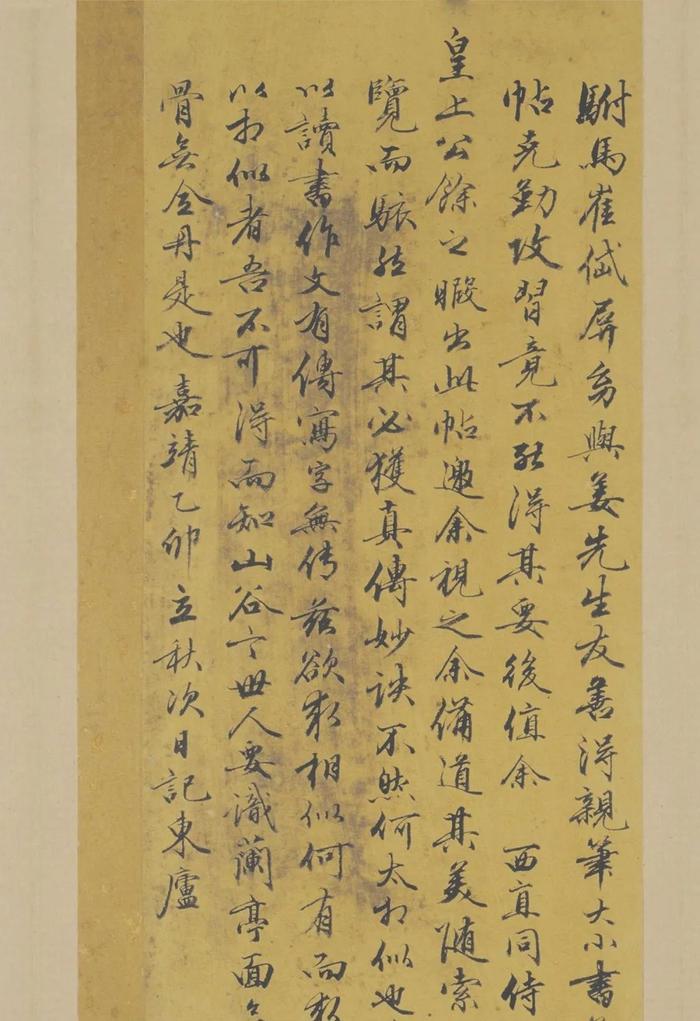 駙馬崔岱屏亦與姜先生友善得親筆大小書
帖克勤攻習竟不能得其要後值余 西直同侍
皇上公餘之暇出此帖邀余視之余備道其美随索
覽而駭然謂其必獲真傳妙訣不然何太相似也
以讀書作文有傳寫字無传兹欲求相似何有而求
以相似者吾不可得而知山谷云世人要識蘭亭面
骨無金丹是也嘉靖乙卯立秋次日記東廬